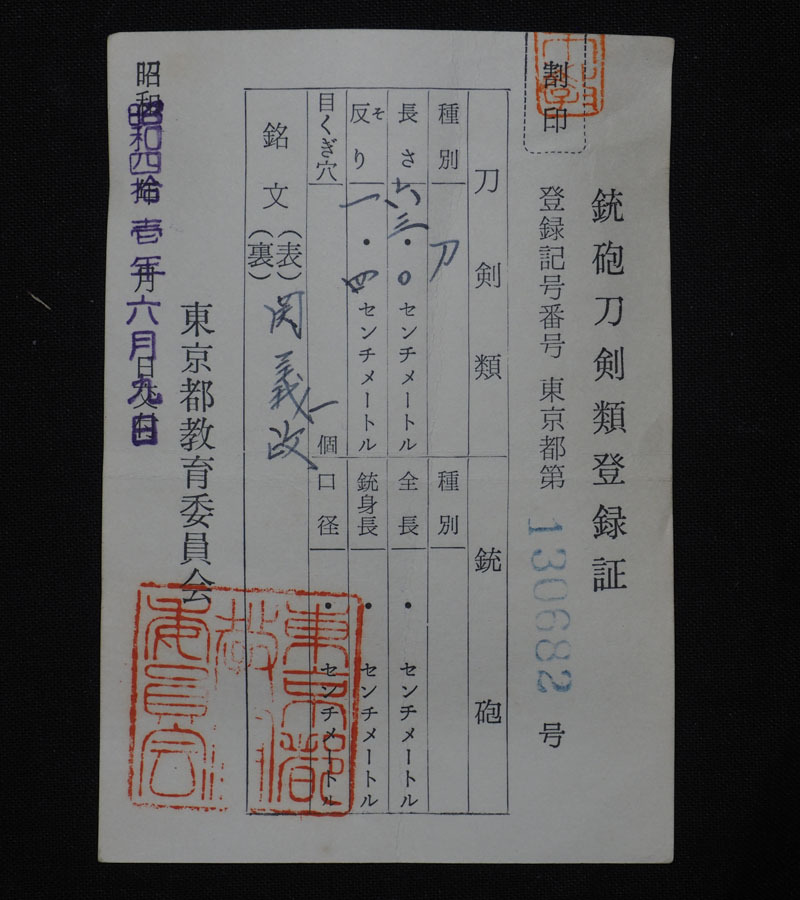 割印
銃砲刀剣類登録証
登録記号番号 東京都第 130682 号
刀剣類
種別 刀
長さ 六三・〇センチメートル
反り 一・四センチメートル
そ
目くぎ穴 一個
銘文 (表) 関義政
(裏)
銃砲
種別
全長 ・ センチメートル
銃身長 ・ センチメートル
口径 ・ センチメートル
東京都教育委員会
昭和四拾壱年六月九日
東京都教育委員会